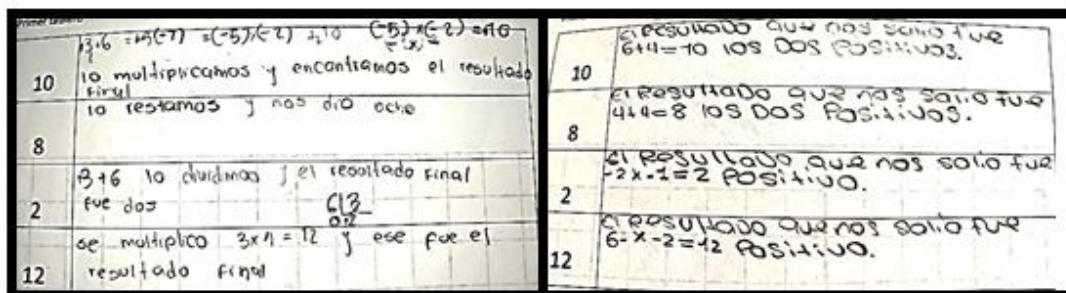 (-5) x (-2) = 10
10
lo multiplicamos y encontramos el resultado
final
lo restamos y nos dio ocho
8
3+6 lo dividimos y el resultado final
2
fue dos
6/3
se multiplico 3x4=12 y ese fue el
12
resultado final
el resultado que nos salio fue
6+4=10 los dos positivos.
10
el resultado que nos salio fue
4+4=8 los dos positivos.
8
el resultado que nos salio fue
-2x-1=2 positivo.
2
el resultado que nos salio fue
6-x-2=12 positivo.
12